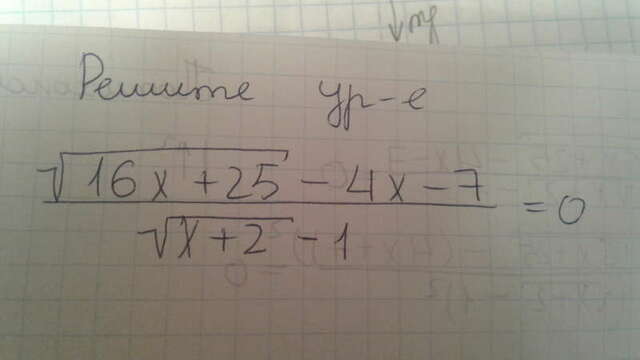 Решите ур-е
√(16x+25) - 4x - 7
√(x+2) - 1
= 0